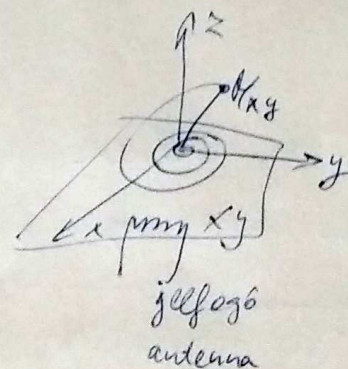 z
xy
y
x xy
jelfogó
antenna